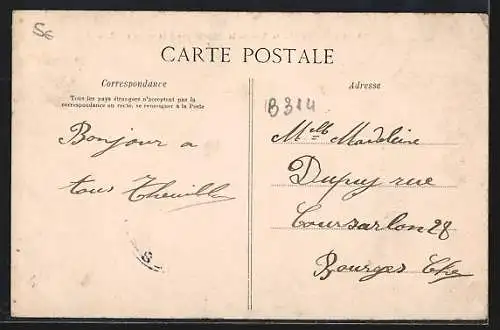 56
CARTE POSTALE
Correspondance
Tous les pays étrangers n'acceptent pas la
correspondance au recto, se renseigner à la Poste
Bonjour a
tous
Adresse
B314
Melle Madeleine
Dupuy rue
Coursarlon 28
Bourges Cher